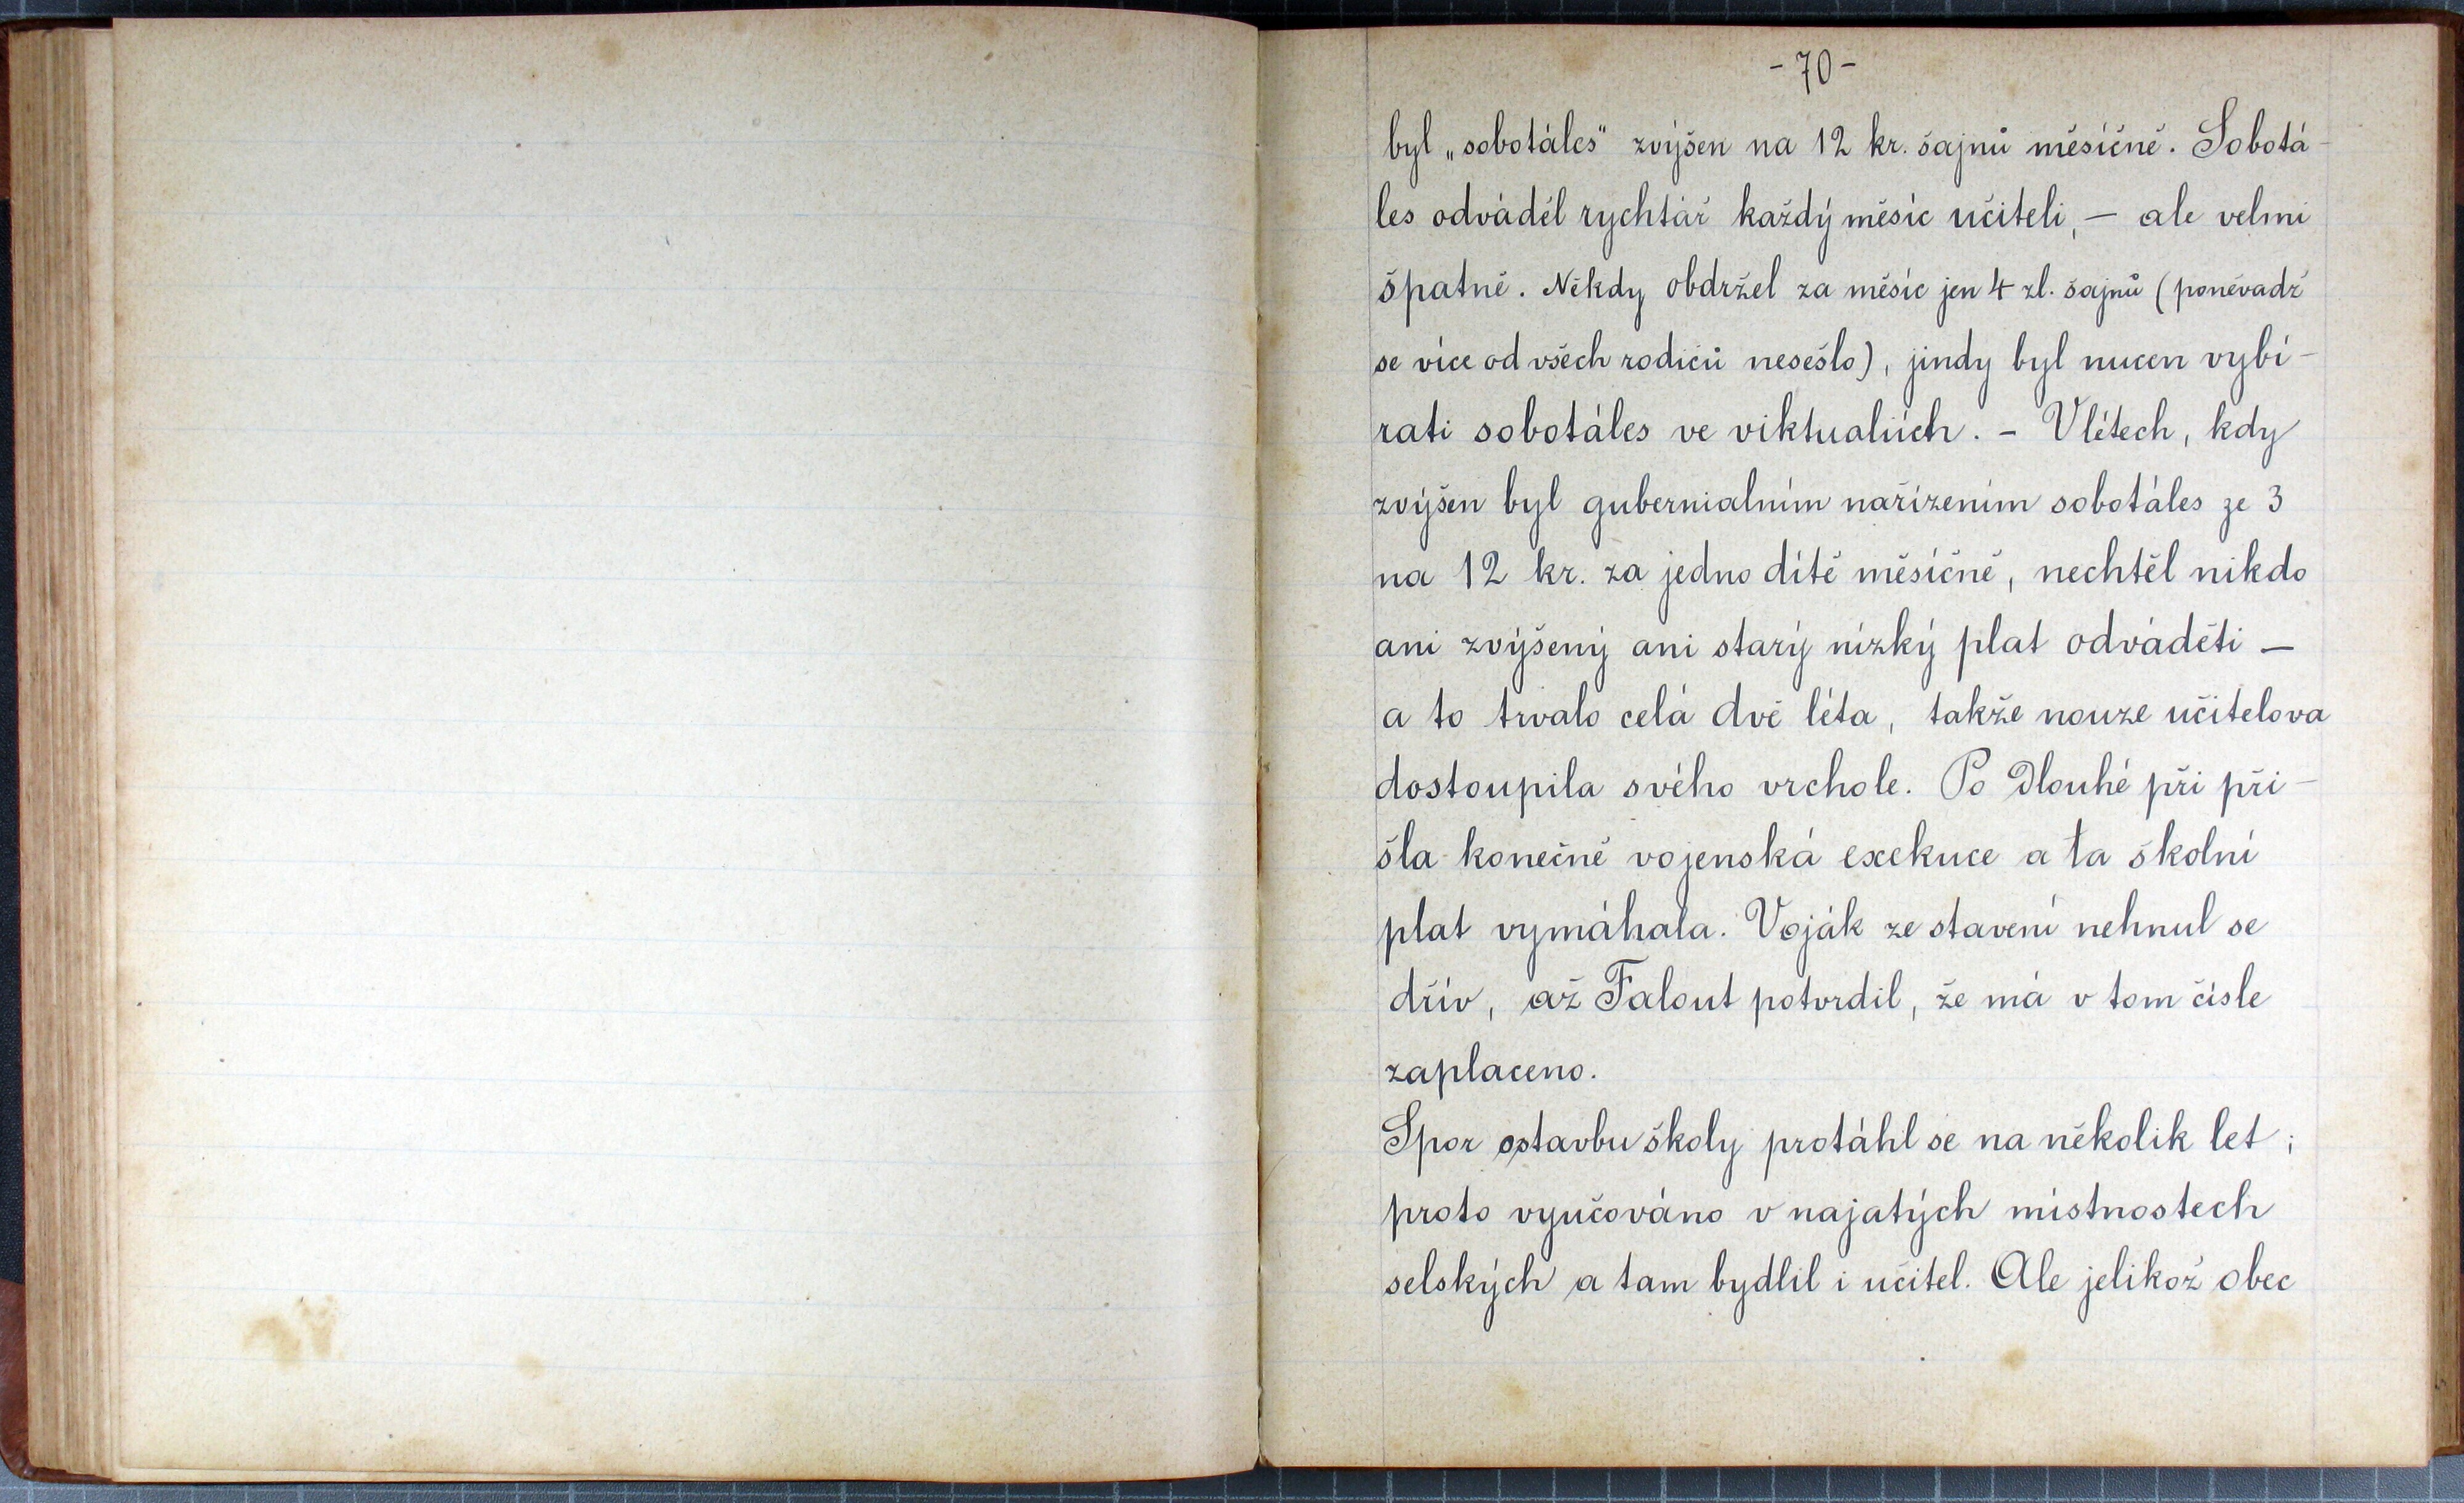 - 70 -
byl „sobotáles" zvýšen na 12 kr. šajnů měsíčně. Sobotá-
les odváděl rychtář každý měsíc učiteli, — ale velmi
špatně. Někdy obdržel za měsíc jen 4 zl. šajnů (poněvadž
se více od všech rodičů nesešlo), jindy byl nucen vybí-
rati sobotáles ve viktualiích. - V létech, kdy
zvýšen byl gubernialním nařízením sobotáles ze 3
na 12 kr. za jedno dítě měsíčně, nechtěl nikdo
ani zvýšený ani starý nízký plat odváděti —
a to trvalo celá dvě léta, takže nouze učitelova
dostoupila svého vrchole. Po dlouhé při při-
šla konečně vojenská exekuce a ta školní
plat vymáhala. Voják ze stavení nehnul se
dřív, až Falout potvrdil, že má v tom čísle
zaplaceno.
Spor o stavbu školy protáhl se na několik let;
proto vyučováno v najatých místnostech
selských a tam bydlil i učitel. Ale jelikož obec